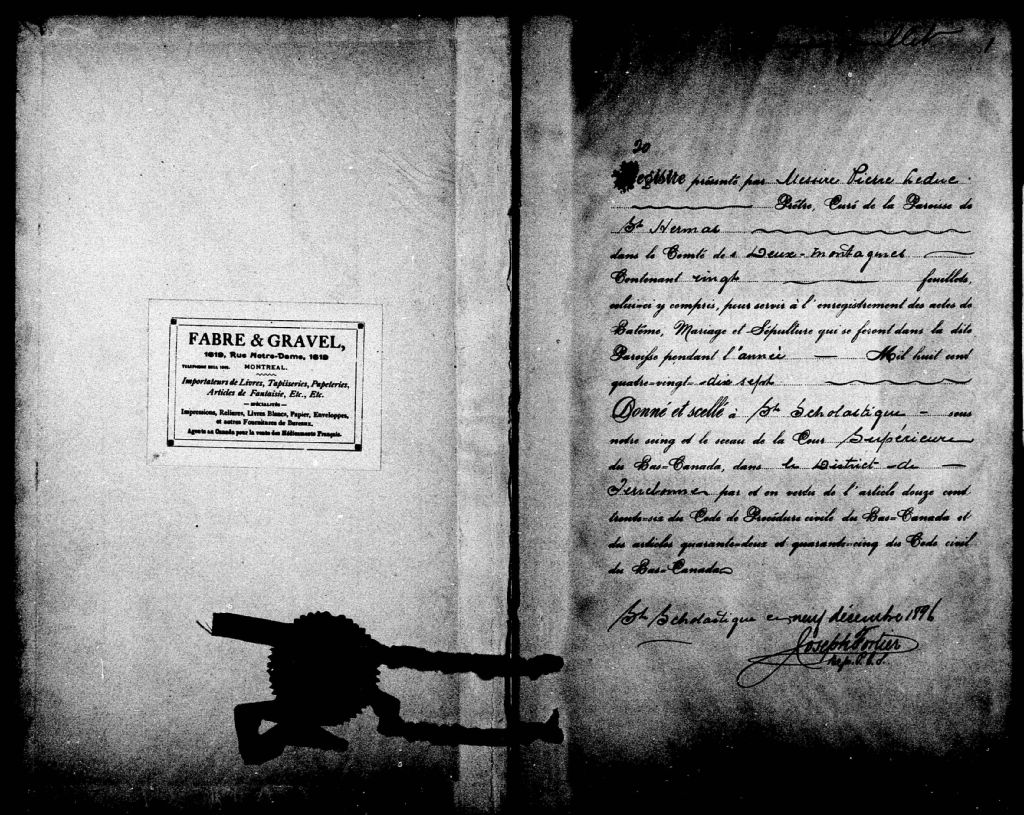 FABRE & GRAVEL,
1619, Rue Notre-Dame, 1619
MONTREAL.
Importateurs de Livres, Tapisseries, Papeteries,
Articles de Fantaisie, Etc., Etc.
— SPÉCIALITÉS —
Impressions, Reliures, Livres Blancs, Papier, Enveloppes,
et autres Fournitures de Bureaux.
Agents au Canada pour la vente des Médicaments Français.
1
20
Registre présenté par Messire Pierre Leduc
Prêtre, Curé de la Paroisse de
St Hermas
dans le Comté des Deux-Montagnes
Contenant vingt feuillets,
celui-ci y compris, pour servir à l'enregistrement des actes de
Batême, Mariage et Sépulture qui se feront dans la dite
Paroisse pendant l'année — Mil huit cent
quatre-vingt-dix sept
Donné et scellé à Ste Scholastique — sous
notre seing et le sceau de la Cour Supérieure
du Bas-Canada, dans le District de —
Terrebonne par et en vertu de l'article douze cent
trente-six du Code de Procédure civile du Bas-Canada et
des articles quarante-deux et quarante-cinq du Code civil
du Bas-Canada
Ste Scholastique ce neuf décembre 1896
Joseph Fortier
Dep. P.C.S.